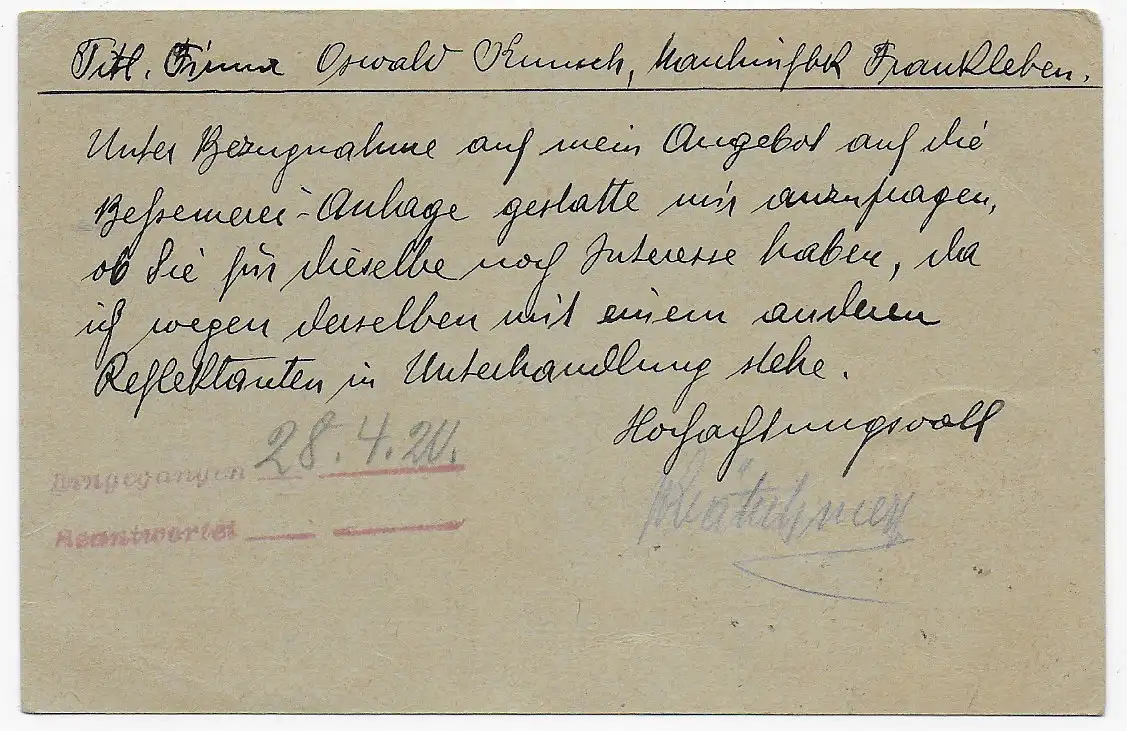 Titl. Firma Oswald Kunsch, Maschinfbk Frankleben.
Unter Bezugnahme auf mein Angebot auf die
Beßemerei-Anlage gestatte mir anzufragen,
ob Sie für dieselbe noch Interesse haben, da
ich wegen derselben mit einem anderen
Reflektanten in Unterhandlung stehe.
Hochachtungsvoll
Eingegangen 28.4.20.
Beantwortet